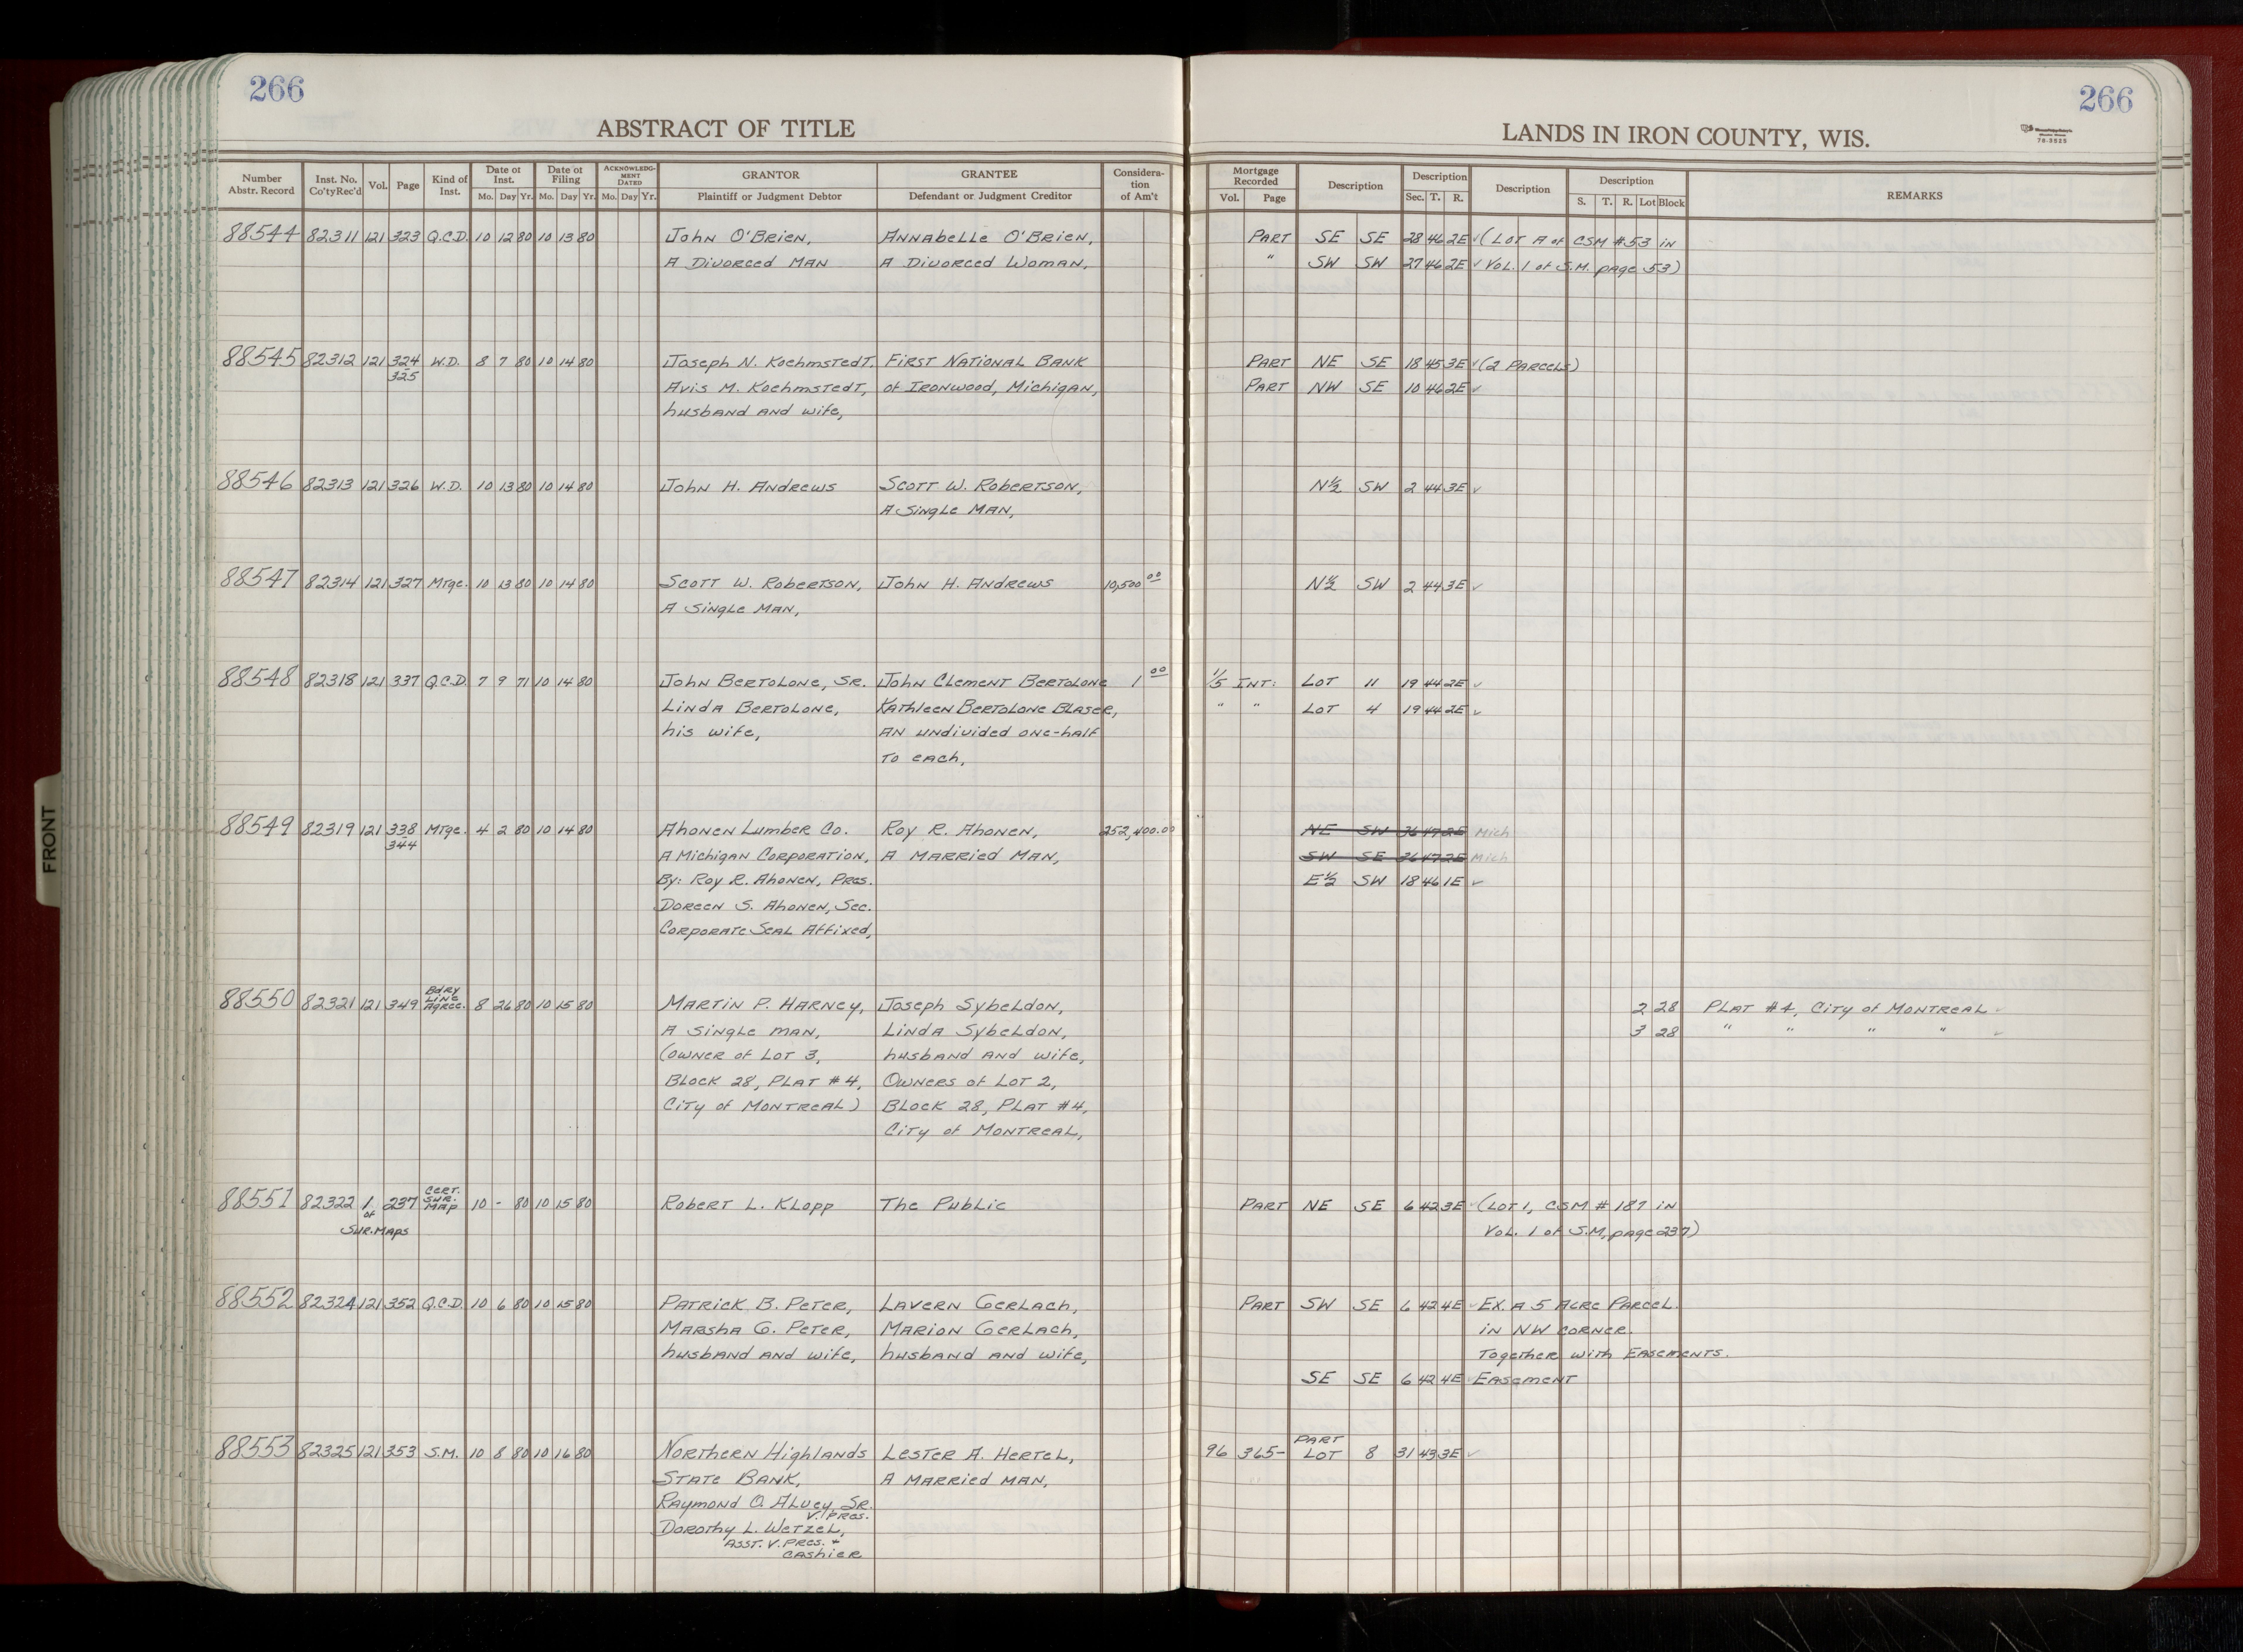 266
266
ABSTRACT OF TITLE
LANDS IN IRON COUNTY, WIS.
Number Abstr. Record | Inst. No. Co'ty Rec'd | Vol. | Page | Kind of Inst. | Date of Inst. Mo. Day Yr. | Date of Filing Mo. Day Yr. | ACKNOWLEDGMENT DATED Mo. Day Yr. | GRANTOR Plaintiff or Judgment Debtor | GRANTEE Defendant or Judgment Creditor | Consideration of Am't | Mortgage Recorded Vol. Page | Description | Description Sec. T. R. | Description | Description S. T. R. Lot Block | REMARKS
88544 82311 121 323 Q.C.D. 10 12 80 10 13 80 John O'Brien, Annabelle O'Brien, Part SE SE 28 46 2E ✓ (Lot A of CSM #53 in
A Divorced Man A Divorced Woman, " SW SW 27 46 2E ✓ Vol. 1 of S.M. page 53)
88545 82312 121 324 W.D. 8 7 80 10 14 80 Joseph N. Koehmstedt, First National Bank Part NE SE 18 45 3E ✓ (2 Parcels)
325
Avis M. Koehmstedt, of Ironwood, Michigan, Part NW SE 10 46 2E ✓
husband and wife,
88546 82313 121 326 W.D. 10 13 80 10 14 80 John H. Andrews Scott W. Robertson, N½ SW 2 44 3E ✓
A Single Man,
88547 82314 121 327 Mtge. 10 13 80 10 14 80 Scott W. Robertson, John H. Andrews 10,500 00 N½ SW 2 44 3E ✓
A Single Man,
88548 82318 121 337 Q.C.D. 7 9 71 10 14 80 John Bertolone, Sr. John Clement Bertolone 1 00 1/5 Int: Lot 11 19 44 2E ✓
Linda Bertolone, Kathleen Bertolone Blaser, " " Lot 4 19 44 2E ✓
his wife, an undivided one-half
to each,
88549 82319 121 338 Mtge. 4 2 80 10 14 80 Ahonen Lumber Co. Roy R. Ahonen, 252,400.00 NE SW 36 47 2E Mich
344
A Michigan Corporation, A Married Man, SW SE 36 47 2E Mich
By: Roy R. Ahonen, Pres. E½ SW 18 46 1E ✓
Doreen S. Ahonen, Sec.
Corporate Seal Affixed,
88550 82321 121 349 Bdry Line Agree. 8 26 80 10 15 80 Martin P. Harney, Joseph Sybeldon, 2 28 Plat #4, City of Montreal ✓
A single man, Linda Sybeldon, 3 28 " " " " ✓
(owner of Lot 3, husband and wife,
Block 28, Plat #4, Owners of Lot 2,
City of Montreal) Block 28, Plat #4,
City of Montreal,
88551 82322 1 237 Cert. Sur. Map 10 - 80 10 15 80 Robert L. Klopp The Public Part NE SE 6 42 3E ✓ (Lot 1, CSM # 187 in
of
Sur. Maps Vol. 1 of S.M, page 237)
88552 82324 121 352 Q.C.D. 10 6 80 10 15 80 Patrick B. Peter, Lavern Gerlach, Part SW SE 6 42 4E ✓ Ex. a 5 Acre Parcel.
Marsha G. Peter, Marion Gerlach, in NW corner.
husband and wife, husband and wife, Together with Easements.
SE SE 6 42 4E ✓ Easement
88553 82325 121 353 S.M. 10 8 80 10 16 80 Northern Highlands Lester A. Hertel, 96 365- Part Lot 8 31 43 3E ✓
State Bank, A Married Man,
Raymond O. Alvey, Sr.
V. Pres.
Dorothy L. Wetzel,
Asst. V. Pres. +
Cashier
FRONT